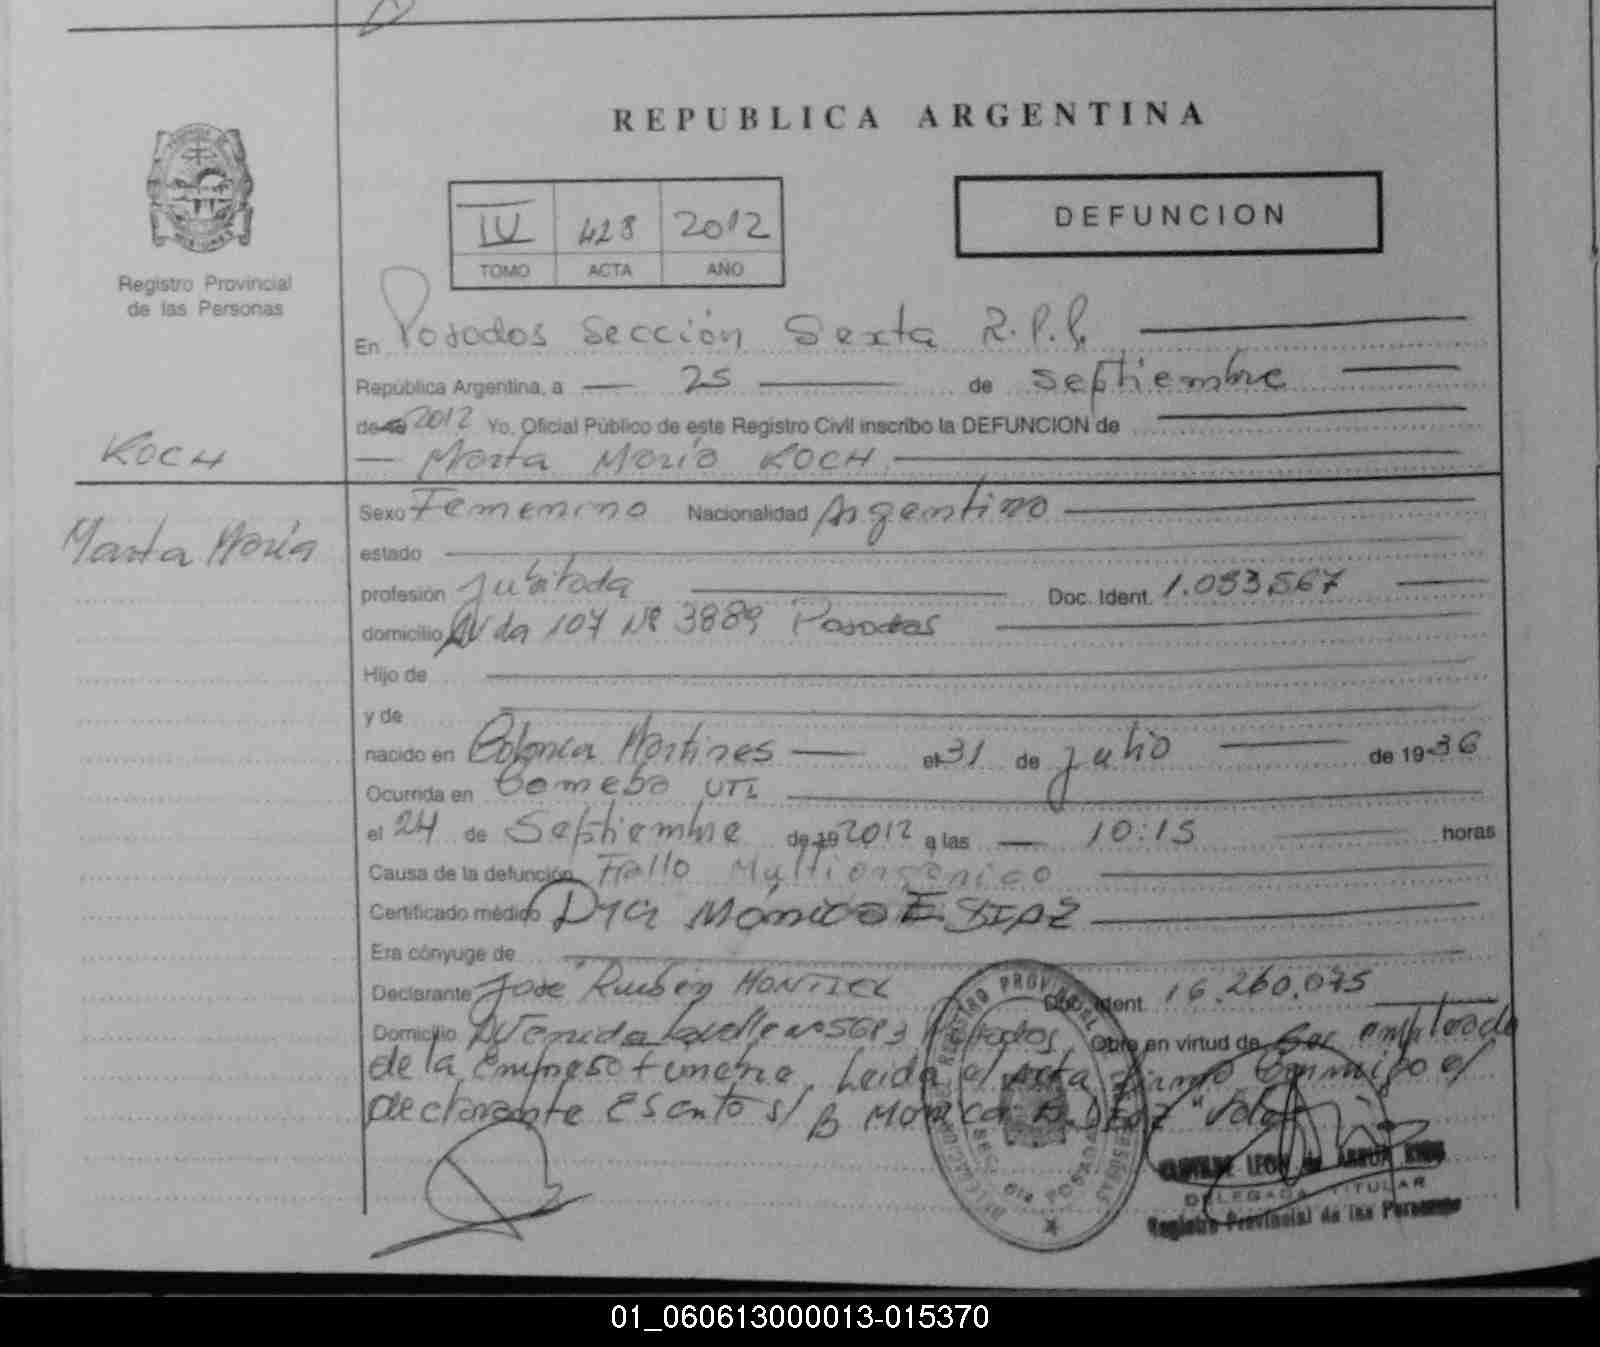 REPUBLICA ARGENTINA
Registro Provincial
de las Personas
IV 428 2012
TOMO ACTA AÑO
DEFUNCION
En Posadas Sección Sexta R.P.P.
República Argentina, a 25 de Septiembre
de 19 2012 Yo, Oficial Público de este Registro Civil inscribo la DEFUNCION de
KOCH
Marta María KOCH
Marta María
Sexo Femenino Nacionalidad Argentina
estado
profesión Jubilada Doc. Ident. 1.053.567
domicilio Avda 107 Nº 3889 Posadas
Hijo de
y de
nacido en Colonia Martires el 31 de Julio de 1936
Ocurrida en UTI
el 24 de Septiembre de 19 2012 a las 10:15 horas
Causa de la defunción Fallo Multiorgánico
Certificado médico Dra Mónica E DIAZ
Era cónyuge de
Declarante José Rubén MONTIEL Doc. Ident. 16.260.075
Domicilio Avenida Lavalle nº 5683 Posadas Obra en virtud de Ser empleado
de la Empresa Funebre. Leida el Acta Firma Conmigo el
declarante Escrito s/ B Monica "Vale"
DELEGADA TITULAR
Registro Provincial de las Personas
01_060613000013-015370